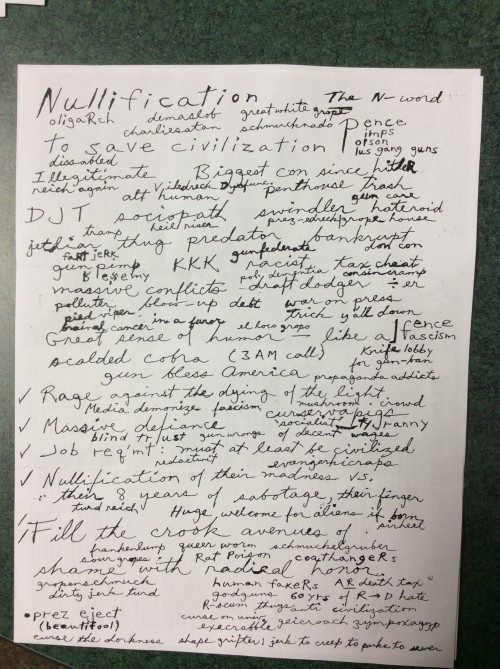 Nullification The N-word
oligaRch demaslob great white grope
charliesatan schmucknado Pence
imps
To save civilization poison
dissabled lus gang guns
Illegitimate Biggest con since hitleR
reich again Viledrech Dysfunc penthouse trash
alt human gun care
DJT sociopath swindler hateroid
tramp heil riser prez-edrech/grope house
jetliar thug predator bankrupt
fart jeRK gunfederate don con
gun pimp KKK racist tax cheat
Blesemy poly dementia consin cramp
massive conflicts - draft dodger ÷er
polluter blow-up debt war on press
pied viper trick y'all down
brainal cancer in a furor el loco grops
Great sense of humor - like a fence
fascism
scalded cobra (3AM call) Knife lobby
for gun-ban
gun bless America propaganda addicts
✓ Rage against the dying of the light
Media demonize fascism mushroom-crowd
curservapigs
✓ Massive defiance socialist tyranny
blind trust gun wrongs of decent wages
✓ Job req'mt: must at least be civilized
redactivit evangerhicraps
✓ Nullification of their madness vs.
their 8 years of sabotage, their finger
turd reich Huge, welcome for aliens if born
airheil
Fill the crook avenues of
frankenlump queer worm schmuckelgruber
sour grapes Rat Poison coathangeRs
shame with radical honor
gropenschmuck human fakeRs AR death tax
dirty jerk turd godguns 60 yrs of R→D hate
R-scum thugs anti civilization
• prez eject curse on univ
(beautifool) execrable geicroach zympoxagyp
curse the darkness shape grifter; jerk to creep to puke to sewer